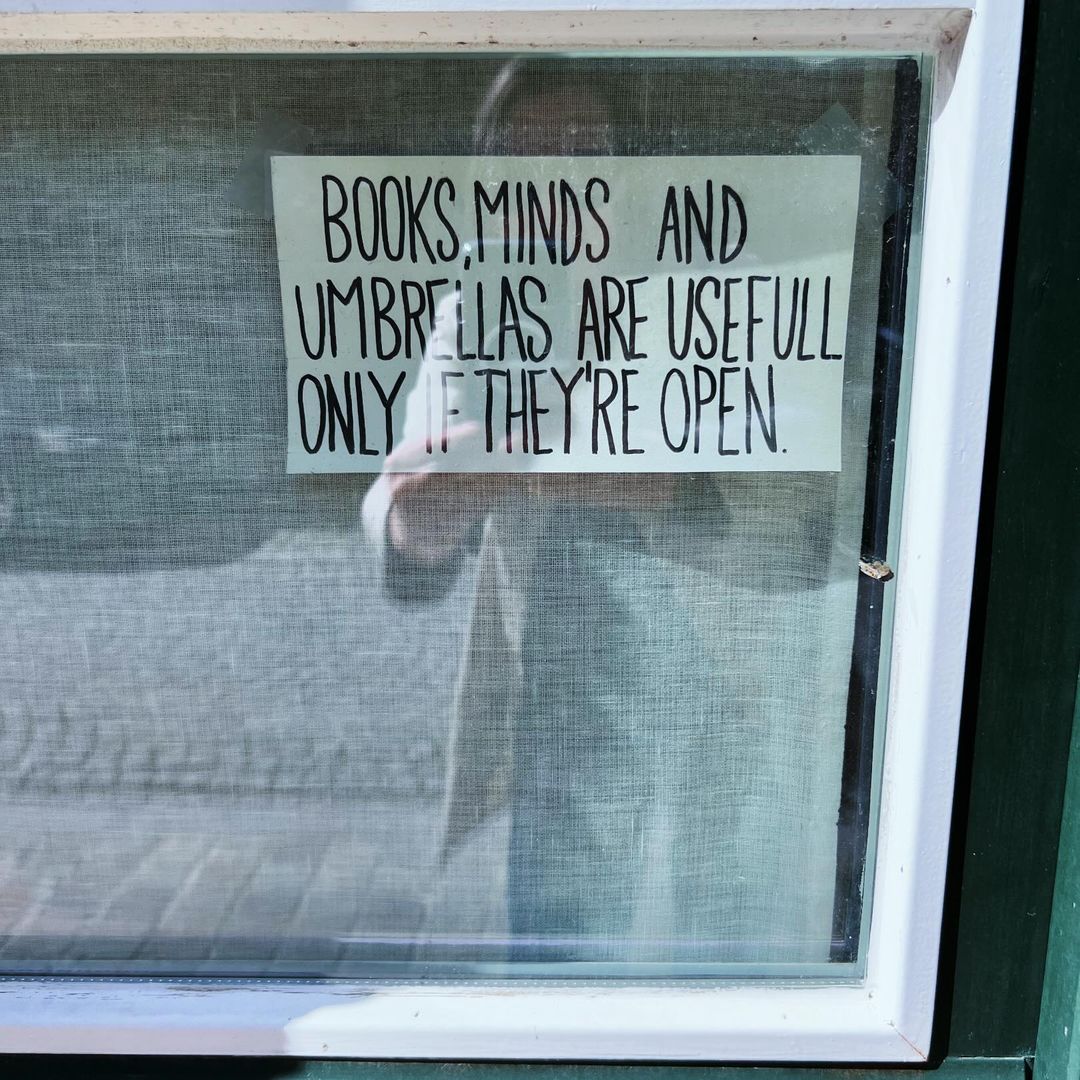 BOOKS, MINDS AND
UMBRELLAS ARE USEFULL
ONLY IF THEY'RE OPEN.